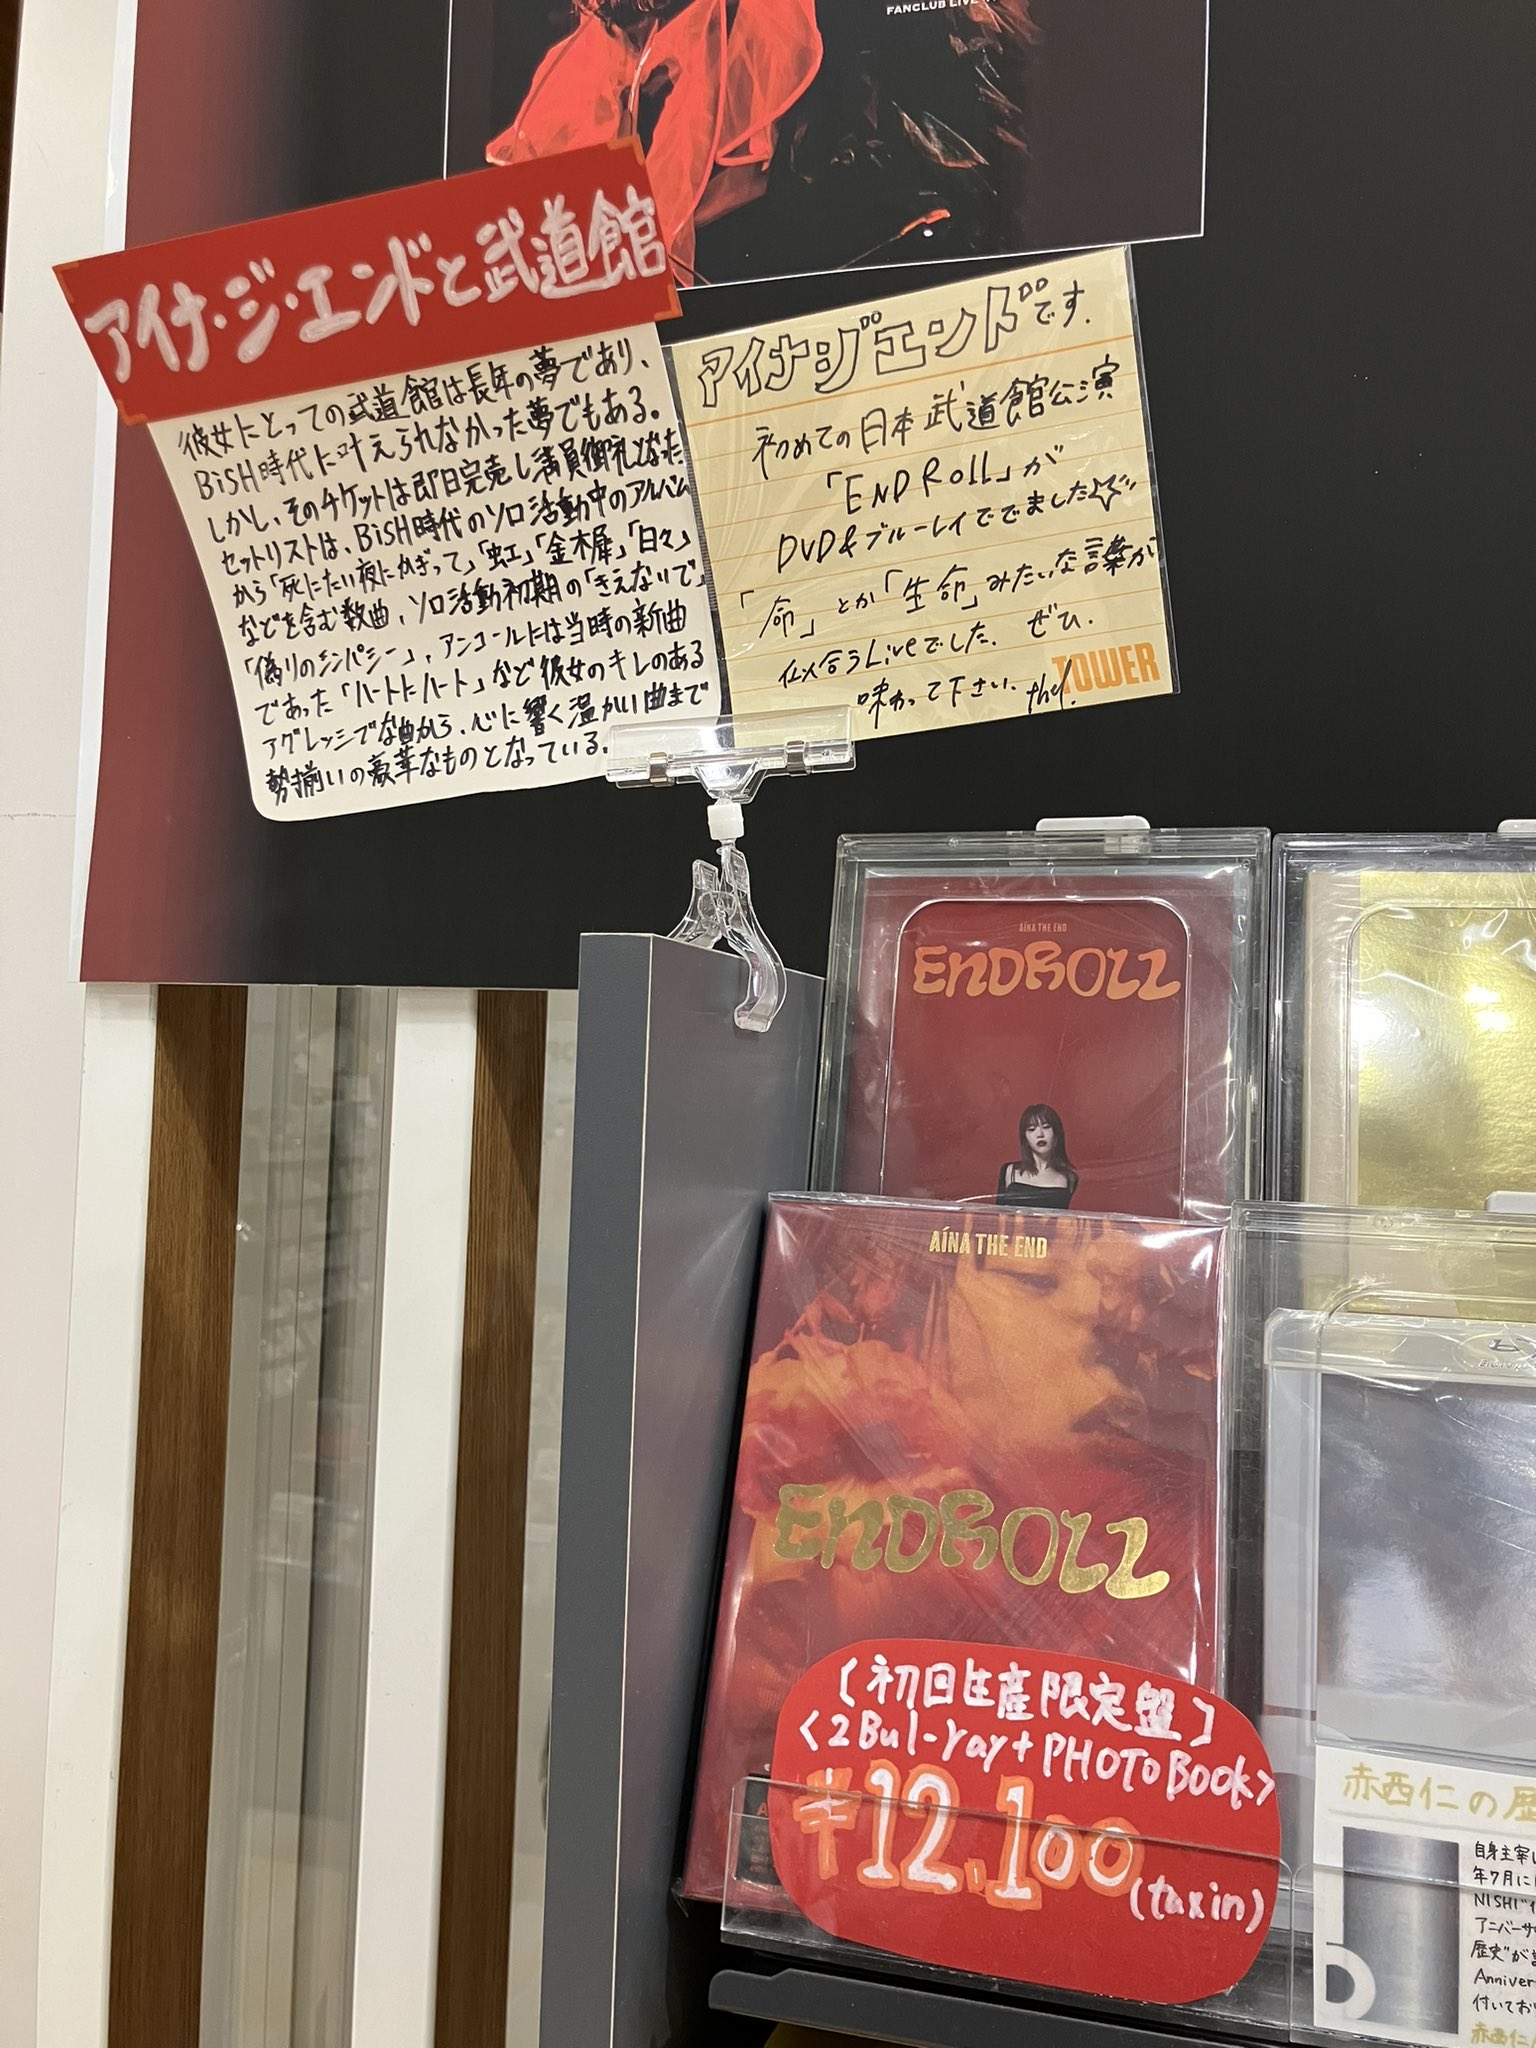 FANCLUB LIVE
アイナ・ジ・エンドと武道館
彼女にとっての武道館は長年の夢であり、
BiSH時代に叶えられなかった夢でもある。
しかし、そのチケットは即日完売し満員御礼となった
セットリストは、BiSH時代のソロ活動中のアルバム
から「死にたい夜にかぎって」「虹」「金木犀」「日々」
などを含む数曲、ソロ活動初期の「きえないで」
「偽りのシンパシー」、アンコールには当時の新曲
であった「ハートにハート」など彼女のキレのある
アグレッシブな曲から、心に響く温かい曲まで
勢揃いの豪華なものとなっている。
アイナジエンドです.
初めての日本武道館公演
「ENDROll」が
DVD&ブルーレイででました☆
「命」とか「生命」みたいな言葉が
似合うLiveでした. ぜひ.
味わって下さい.
TOWER
AÍNA THE END
ENDROLL
AÍNA THE END
ENDROLL
[初回生産限定盤]
<2Bul-ray+PHOTOBOOK>
¥12,100(taxin)
赤西仁の歴
自身主宰
年7月に
NISHI"
アニバーサ
歴史"が
Anniver
付いてお
赤西仁